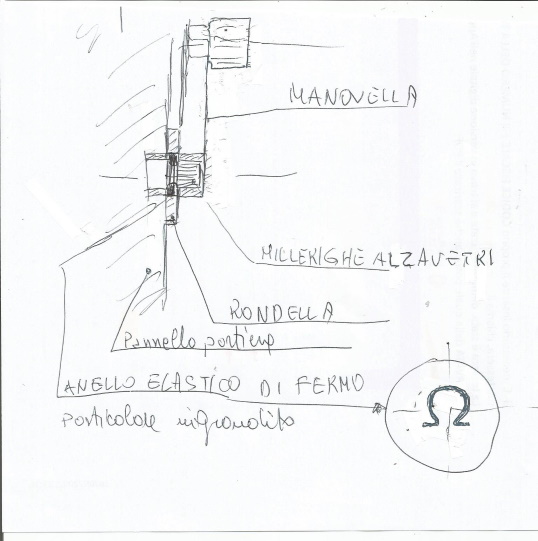 MANOVELLA
MILLERIGHE ALZAVETRI
RONDELLA
Pannello portiera
ANELLO ELASTICO DI FERMO
particolare ingrandito